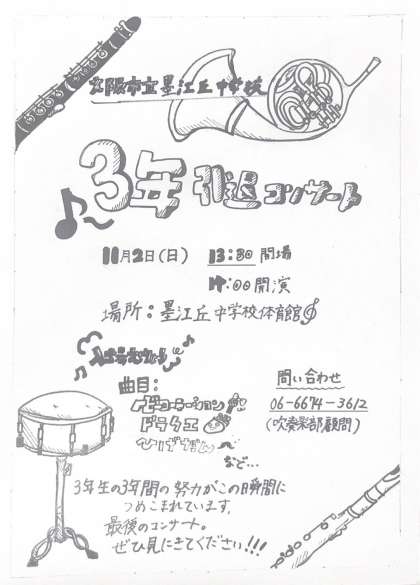 大阪市立墨江丘中学校
3年 引退コンサート
11月2日(日) 13:30 開場
14:00 開演
場所:墨江丘中学校体育館
入場無料
曲目:
デコレーション
ドラクエ
ひげダン
など…
問い合わせ
06-6674-3612
(吹奏楽部顧問)
3年生の3年間の努力がこの瞬間に
つめこまれています。
最後のコンサート。
ぜひ見にきてください!!!